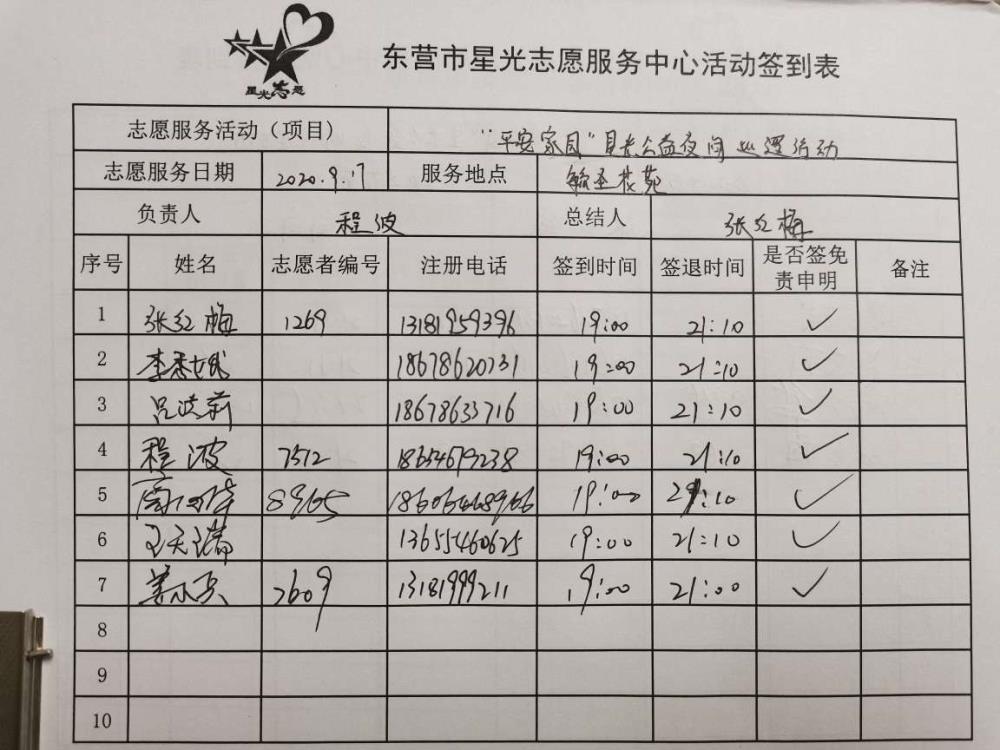 星光志愿
东营市星光志愿服务中心活动签到表
志愿服务活动（项目） "平安家园"星光公益夜间巡逻活动
志愿服务日期 2020.9.17 服务地点 毓圣花苑
负责人 程波 总结人 张红梅
序号 姓名 志愿者编号 注册电话 签到时间 签退时间 是否签免责申明 备注
1 张红梅 1269 13181959396 19:00 21:10 ✓
2 李秀 18678620731 19:00 21:10 ✓
3 吕洪莉 18678633716 19:00 21:10 ✓
4 程波 7572 18654679238 19:00 21:10 ✓
5 8965 18606468966 19:00 21:10 ✓
6 王天瑞 13655460625 19:00 21:10 ✓
7 姜 2609 13181999211 19:00 21:00 ✓
8
9
10